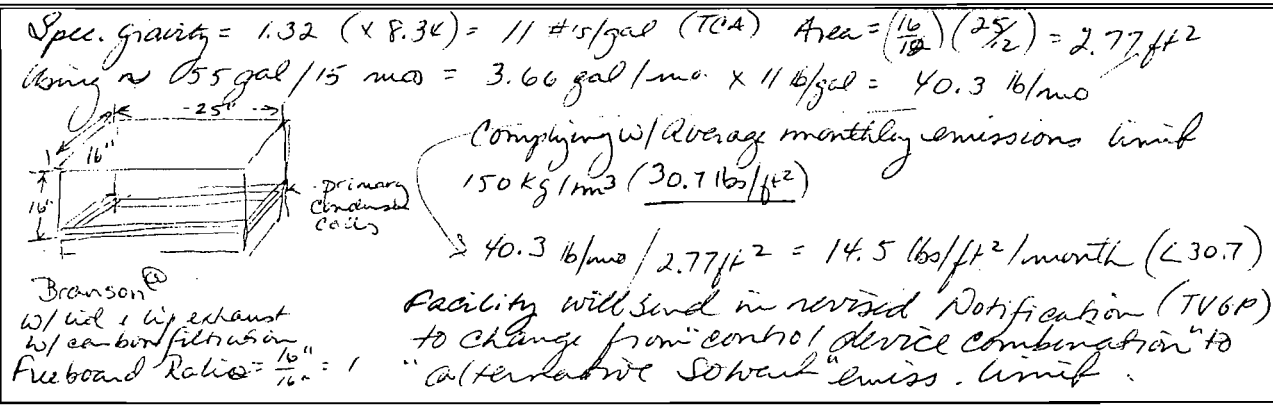 Spec. Gravity = 1.32 (x 8.34) = 11 #'s/gal (TCA) Area = (16/12)(25/12) = 2.77 ft2
Using ~ 55 gal/15 mos = 3.66 gal/mo. x 11 lb/gal = 40.3 lb/mo
25"
16"
16"
primary
condenser
coils
Complying w/ average monthly emissions limit
150 kg/m3 (30.7 lbs/ft2)
40.3 lb/mo / 2.77 ft2 = 14.5 lbs/ft2/month (<30.7)
Branson
w/ lid & lip exhaust
w/ carbon filtration
Freeboard Ratio = 16"/16" = 1
Facility will send in revised Notification (TVGP)
to change from "control device combination" to
"alternative solvent" emiss. limit.